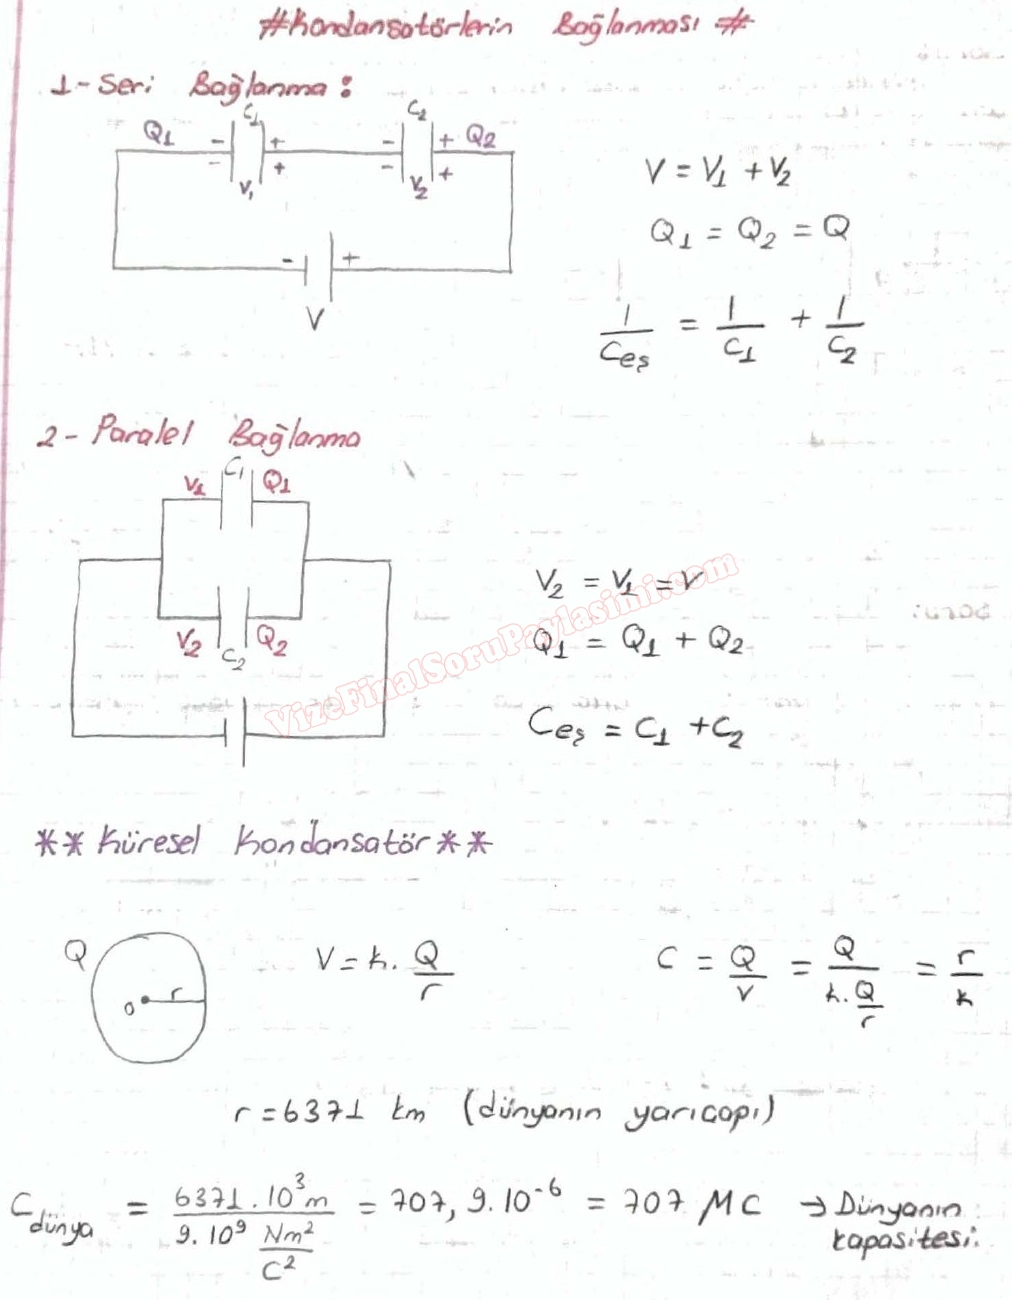 #Kondansatörlerin Bağlanması #
1- Seri Bağlanma :
Q1 - C1 + - C2 + Q2
- V1 + - V2 +
- +
V
V = V1 + V2
Q1 = Q2 = Q
1/Ceş = 1/C1 + 1/C2
2- Paralel Bağlanma
V1 C1 Q1
V2 C2 Q2
V2 = V1 = V
Q1 = Q1 + Q2
Ceş = C1 + C2
VizeFinalSoruPaylasimi.com
** Küresel Kondansatör **
Q
O r
V = k. Q/r
C = Q/V = Q/(k. Q/r) = r/k
r = 6371 km (dünyanın yarıçapı)
Cdünya = 6371.10³m / 9.10⁹ Nm²/C² = 707,9.10⁻⁶ = 707 MC → Dünyanın
kapasitesi.